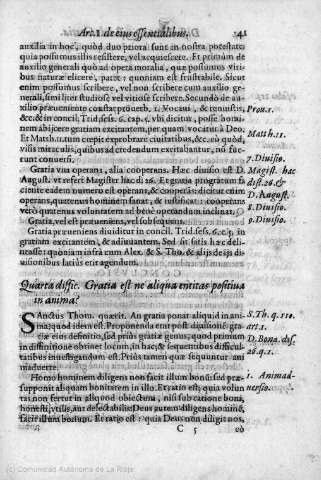 Art. 1. de eius essentialibus. 41
auxilia in hoc, quòd duo priora sunt in nostra potestate:
quia possumus illis resistere, vel acquiescere. Et primùm de
auxilio generali quò ad opera moralia, quæ possumus viribus
naturæ elicere, patet: quoniam est frustrabile. Sicut
enim possumus scribere, vel non scribere cum auxilio generali,
similiter studiosè vel vitiosè scribere. Secundò de auxilio
præueniente constat: prouerb. 1. Vocaui, & renuistis,
&c. & in concil. Trid. sess. 6. cap. 5. vbi dicitur, posse hominem
abijcere gratiam excitantem, per quam vocatur à Deo.
Et Matth. 11. tum cœpit exprobrare ciuitatibus, &c. eò quòd,
visis miraculis, quibus ad credendum excitabantur, nō fuerunt
conuersi.
Gratia vna operans, alia cooperans. Hæc diuisio est D.
August. vt refert Magister hac di. 26. Et eadem prorsus gratia faciens
eadem numero est operans, & cooperās: dicitur enim
operans, quatenus hominem sanat, & iustificat: cooperans
verò quatenus voluntatem ad benè operandum inclinat.
Gratia, vel est præueniens, vel subsequens.
Gratia præueniens diuiditur in concil. Trid. sess. 6. c. 5. in
gratiam excitantem, & adiuuantem. Sed sit satis hæc delineasse:
quoniam infrà cum Alex. & S. Tho. & alijs de ijs diuisionibus
latiùs erit agendum.
Quarta diffic. Gratia est ne aliqua entitas positiua
in anima?
SAnctus Thom. quærit. An gratia ponat aliquid in anima,
quod idem est. Proponenda erat post
eius definitio, sed prius gratiæ genus, quod primum
in diffinitione obtinet locum, in hac, & sequentibus difficultatibus
inuestigandum est. Priùs tamen quæ sequuntur animaduerte.
Homo hominem diligens non facit illum bonū: sed præsupponit
aliquam bonitatem in illo. Et ratio est, quia voluntas
non fertur in aliquod obiectum, nisi sub ratione boni,
honesti, vtilis, aut delectabilis. Deus autem diligens hominē,
facit illum bonum. Et ratio est: quia Deus non diligit nos,
C 5 eò
Prou. 1.
Matth. 11.
7. Diuisio.
D. Magist. hac
dist. 26. &
D. August.
8. Diuisio.
9. Diuisio.
S. Th. q. 110.
art. 1.
D. Bona. dis.
26. q. 1.
1. Animaduersio.
(c) Comunidad Autónoma de La Rioja